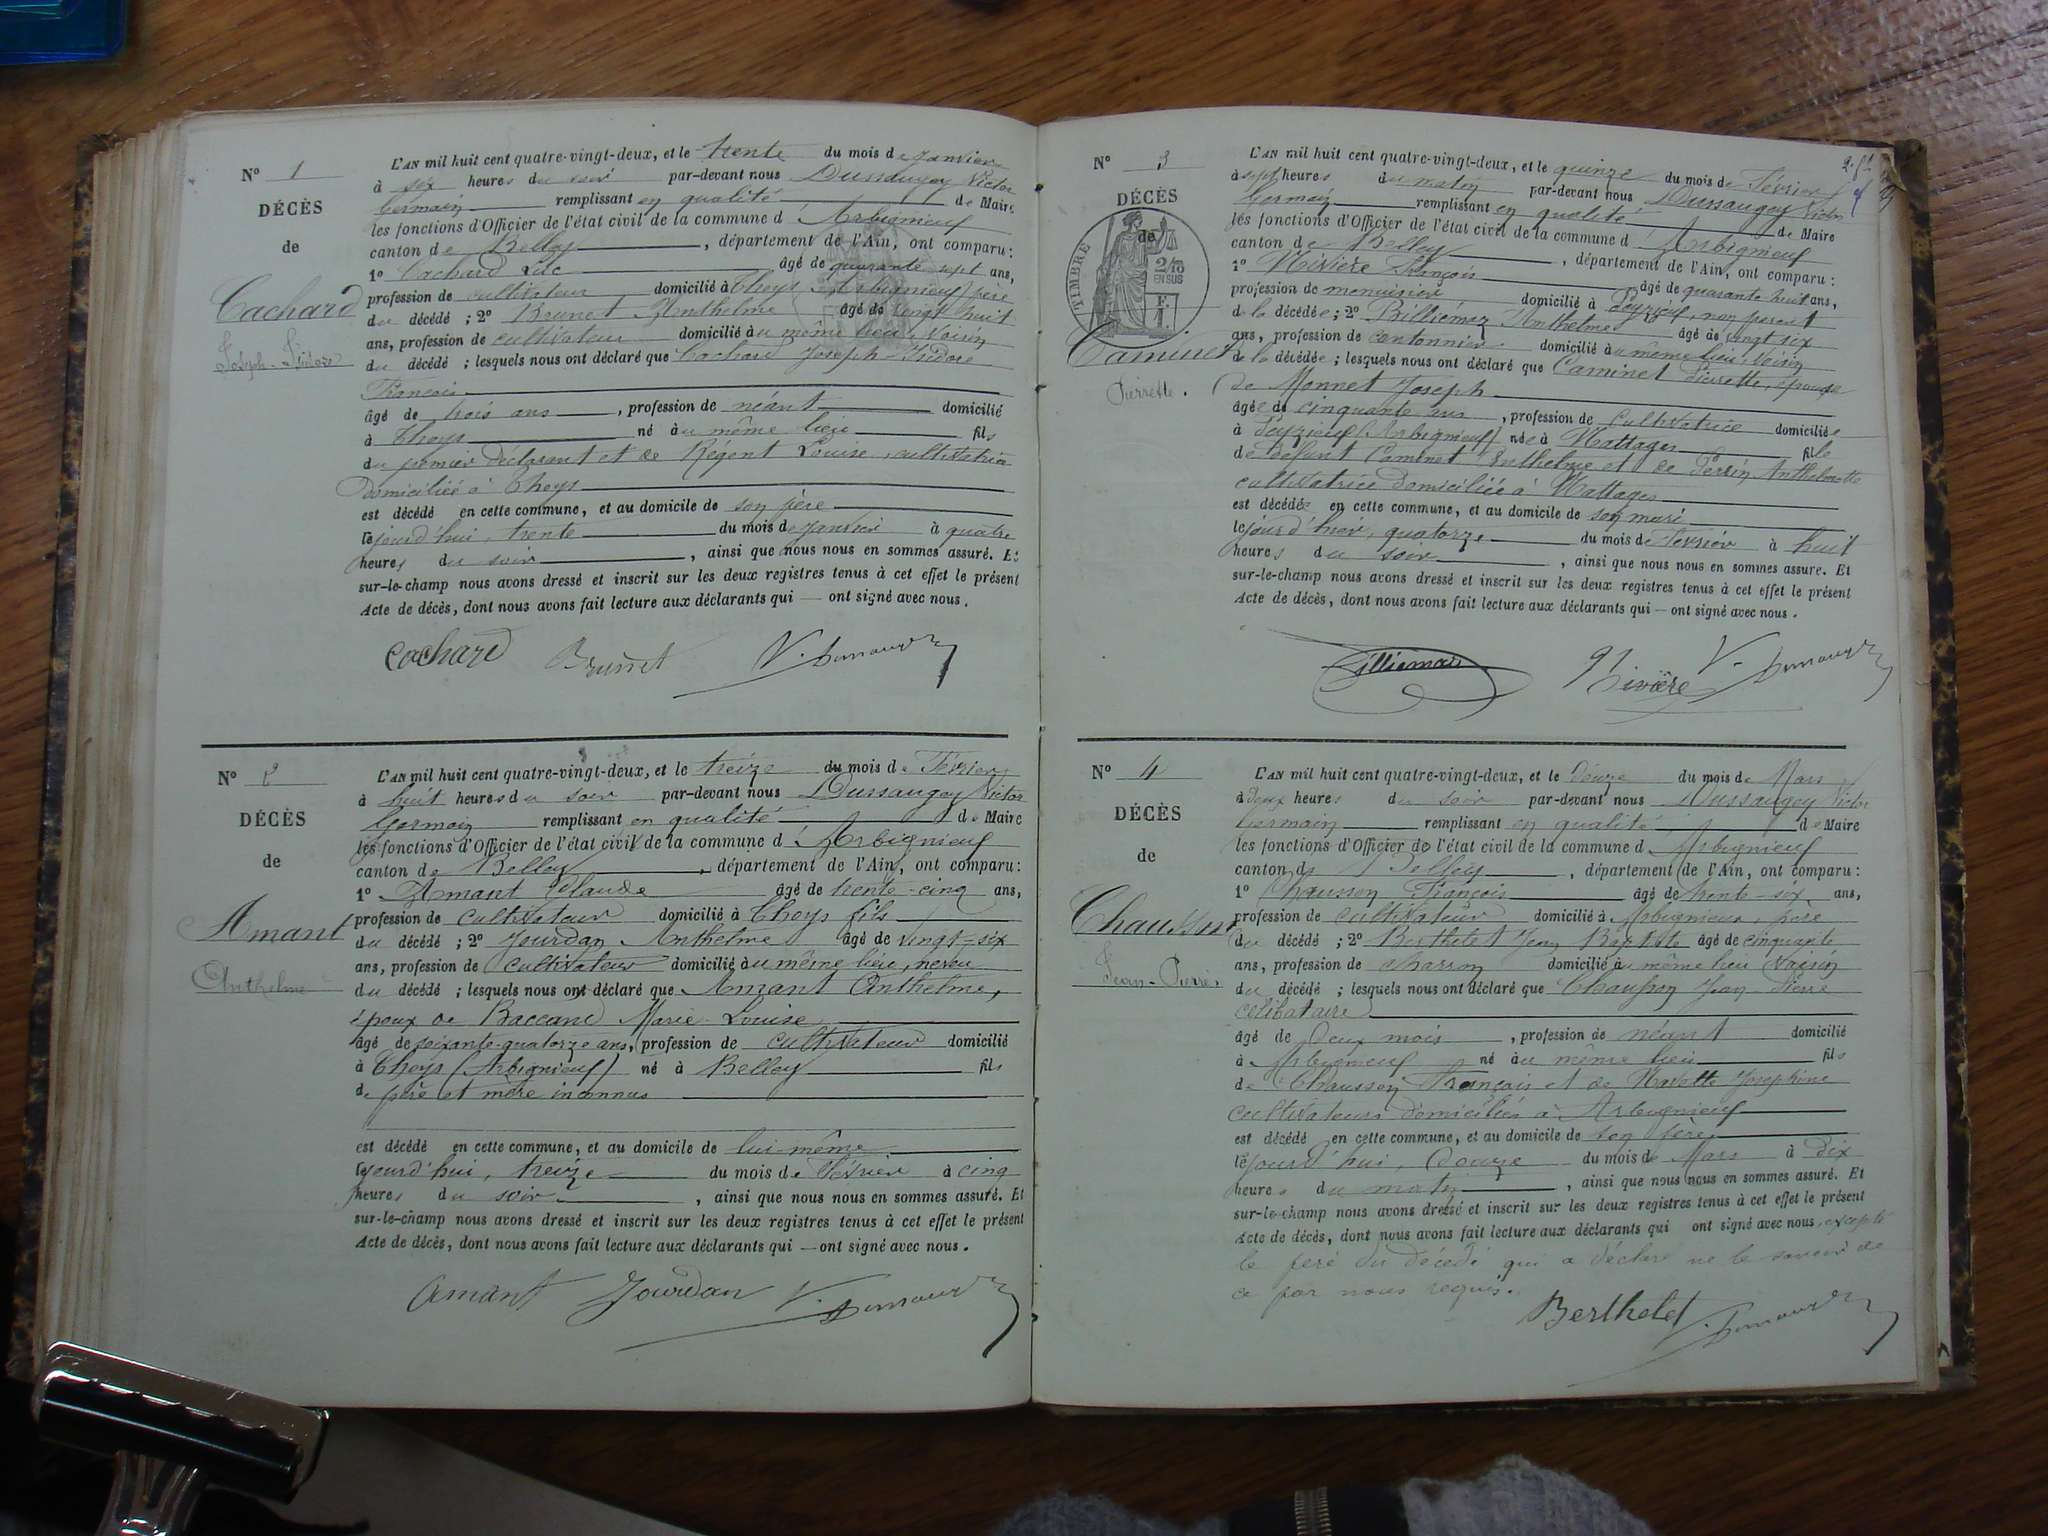 N° 1
DÉCÈS
de
Cachard
Joseph-Isidore
L'AN mil huit cent quatre-vingt-deux, et le trente du mois de Janvier
à six heures du soir par-devant nous Dussaugey Victor
Germain remplissant en qualité de Maire
les fonctions d'Officier de l'état civil de la commune d'Arbignieu
canton de Belley, département de l'Ain, ont comparu :
1° Cachard Luc âgé de quarante sept ans,
profession de cultivateur domicilié à Thoys (Arbignieu) père
du décédé ; 2° Brunet Anthelme âgé de vingt huit
ans, profession de cultivateur domicilié au même lieu, voisin
du décédé ; lesquels nous ont déclaré que Cachard Joseph-Isidore
François
âgé de trois ans, profession de néant domicilié
à Thoys né au même lieu fils
du premier déclarant et de Régent Louise, cultivatrice
domiciliée à Thoys
est décédé en cette commune, et au domicile de son père
le jourd'hui, trente du mois de Janvier à quatre
heures du soir, ainsi que nous nous en sommes assuré. Et
sur-le-champ nous avons dressé et inscrit sur les deux registres tenus à cet effet le présent
Acte de décès, dont nous avons fait lecture aux déclarants qui — ont signé avec nous.
Cachard Brunet V. Dussaugey
N° 2
DÉCÈS
de
Amant
Anthelme
L'AN mil huit cent quatre-vingt-deux, et le treize du mois de Février
à huit heures du soir par-devant nous Dussaugey Victor
Germain remplissant en qualité de Maire
les fonctions d'Officier de l'état civil de la commune d'Arbignieu
canton de Belley, département de l'Ain, ont comparu :
1° Amant Claude âgé de trente-cinq ans,
profession de cultivateur domicilié à Thoys fils
du décédé ; 2° Jourdan Anthelme âgé de vingt-six
ans, profession de cultivateur domicilié au même lieu, neveu
du décédé ; lesquels nous ont déclaré que Amant Anthelme,
époux de Baccand Marie-Louise
âgé de soixante-quatorze ans, profession de cultivateur domicilié
à Thoys (Arbignieu) né à Belley fils
de père et mère inconnus
est décédé en cette commune, et au domicile de lui-même
le jourd'hui, treize du mois de Février à cinq
heures du soir, ainsi que nous nous en sommes assuré. Et
sur-le-champ nous avons dressé et inscrit sur les deux registres tenus à cet effet le présent
Acte de décès, dont nous avons fait lecture aux déclarants qui — ont signé avec nous.
Amant Jourdan V. Dussaugey
N° 3
DÉCÈS
de
TIMBRE
2/10
EN SUS
F.
1
Caminet
Pierrette.
L'AN mil huit cent quatre-vingt-deux, et le quinze du mois de Février
à sept heures du matin par-devant nous Dussaugey Victor
Germain remplissant en qualité de Maire
les fonctions d'Officier de l'état civil de la commune d'Arbignieu
canton de Belley, département de l'Ain, ont comparu :
1° Nivière François âgé de quarante huit ans,
profession de menuisier domicilié à Peyzieu, non parent
de la décédée ; 2° Billiémaz Anthelme âgé de vingt six
ans, profession de cantonnier domicilié au même lieu, voisin
de la décédée ; lesquels nous ont déclaré que Caminet Pierrette, épouse
de Monnet Joseph
âgée de cinquante ans, profession de cultivatrice domiciliée
à Peyzieu (Arbignieu) née à Nattages fille
de défunt Caminet Anthelme et de Perrin Anthelmette
cultivatrice domiciliée à Nattages
est décédée en cette commune, et au domicile de son mari
le jour d'hier, quatorze du mois de Février à huit
heures du soir, ainsi que nous nous en sommes assuré. Et
sur-le-champ nous avons dressé et inscrit sur les deux registres tenus à cet effet le présent
Acte de décès, dont nous avons fait lecture aux déclarants qui — ont signé avec nous.
Billiemaz Nivière V. Dussaugey
N° 4
DÉCÈS
de
Chausson
Jean-Pierre
L'AN mil huit cent quatre-vingt-deux, et le douze du mois de Mars
à deux heures du soir par-devant nous Dussaugey Victor
Germain remplissant en qualité de Maire
les fonctions d'Officier de l'état civil de la commune d'Arbignieu
canton de Belley, département de l'Ain, ont comparu :
1° Chausson François âgé de trente-six ans,
profession de cultivateur domicilié à Arbignieu, père
du décédé ; 2° Berthelet Jean Baptiste âgé de cinquante
ans, profession de charron domicilié au même lieu voisin
du décédé ; lesquels nous ont déclaré que Chausson Jean-Pierre
célibataire
âgé de deux mois, profession de néant domicilié
à Arbignieu né au même lieu fils
de Chausson François et de Navette Joséphine
cultivateurs domiciliés à Arbignieu
est décédé en cette commune, et au domicile de son père
le jourd'hui, douze du mois de Mars à dix
heures du matin, ainsi que nous nous en sommes assuré. Et
sur-le-champ nous avons dressé et inscrit sur les deux registres tenus à cet effet le présent
Acte de décès, dont nous avons fait lecture aux déclarants qui ont signé avec nous, excepté
le père du décédé qui a déclaré ne le savoir de
ce par nous requis.
Berthelet V. Dussaugey